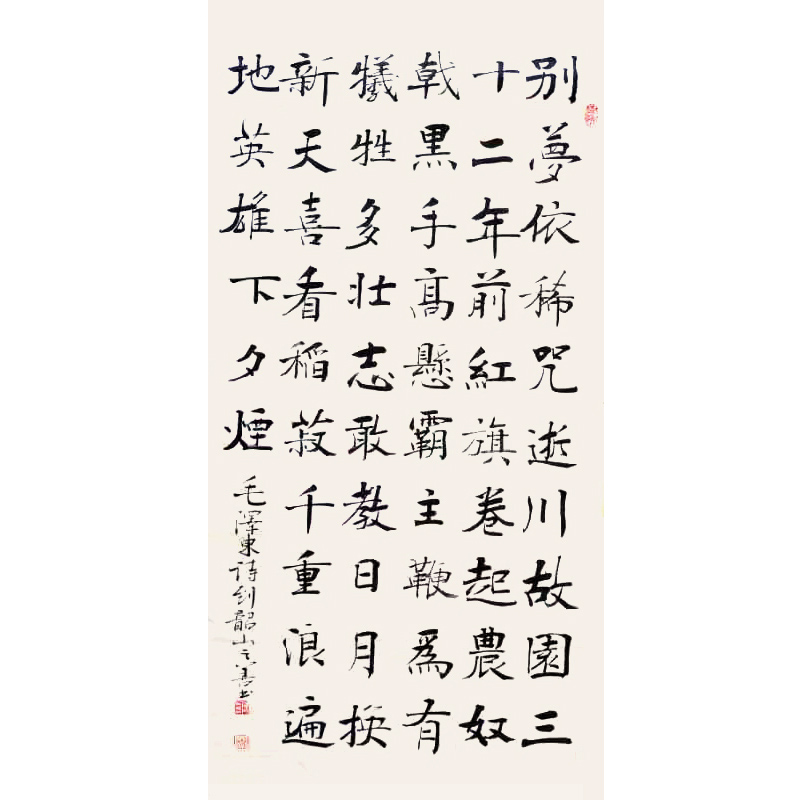 别夢依稀咒逝川故園三
十二年前紅旗卷起農奴
戟黑手髙懸霸主鞭爲有
犧牲多壯志敢教日月换
新天喜看稻菽千重浪遍
地英雄下夕煙
毛澤東詩到韶山